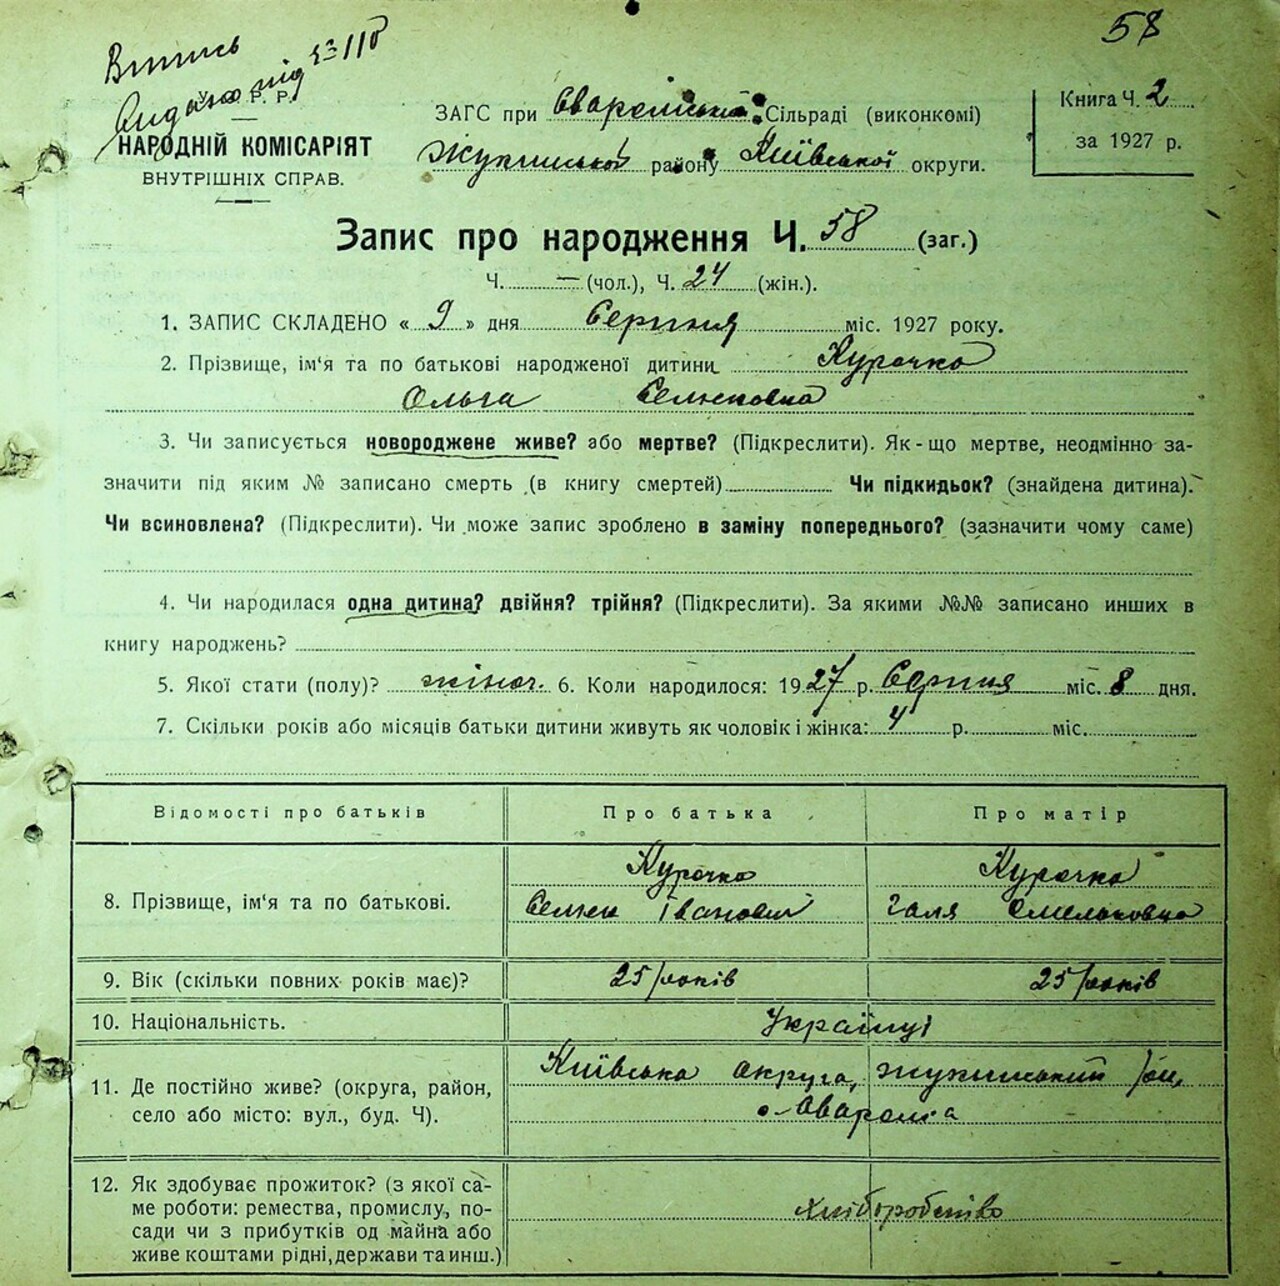 58
Витись
Видано під № 118
У. С. Р. Р.
НАРОДНІЙ КОМІСАРІЯТ
ВНУТРІШНІХ СПРАВ.
ЗАГС при Сваромській Сільраді (виконкомі)
Жукинської району Київської округи.
Книга Ч. 2
за 1927 р.
Запис про народження Ч. 58 (заг.)
Ч. — (чол.), Ч. 24 (жін.).
1. ЗАПИС СКЛАДЕНО « 9 » дня Серпня міс. 1927 року.
2. Прізвище, ім‘я та по батькові народженої дитини Курочко
Ольга Семеновна
3. Чи записується новороджене живе? або мертве? (Підкреслити). Як-що мертве, неодмінно за-
значити під яким № записано смерть (в книгу смертей) Чи підкидьок? (знайдена дитина).
Чи всиновлена? (Підкреслити). Чи може запис зроблено в заміну попереднього? (зазначити чому саме)
4. Чи народилася одна дитина? двійня? трійня? (Підкреслити). За якими №№ записано инших в
книгу народжень?
5. Якої стати (полу)? жіноч. 6. Коли народилося: 1927 р. Серпня міс. 8 дня.
7. Скільки років або місяців батьки дитини живуть як чоловік і жінка: 4 р. міс.
Відомості про батьків Про батька Про матір
8. Прізвище, ім‘я та по батькові. Курочко Курочка
Семен Іванович Галя Омельковна
9. Вік (скільки повних років має)? 25 років 25 років
10. Національність. Українці
11. Де постійно живе? (округа, район, Київська округа, Жукинський
село або місто: вул., буд. Ч). с. Сваромʼя
12. Як здобуває прожиток? (з якої са-
ме роботи: ремества, промислу, по-
сади чи з прибутків од майна або
живе коштами рідні, держави та инш.) Хліборобство